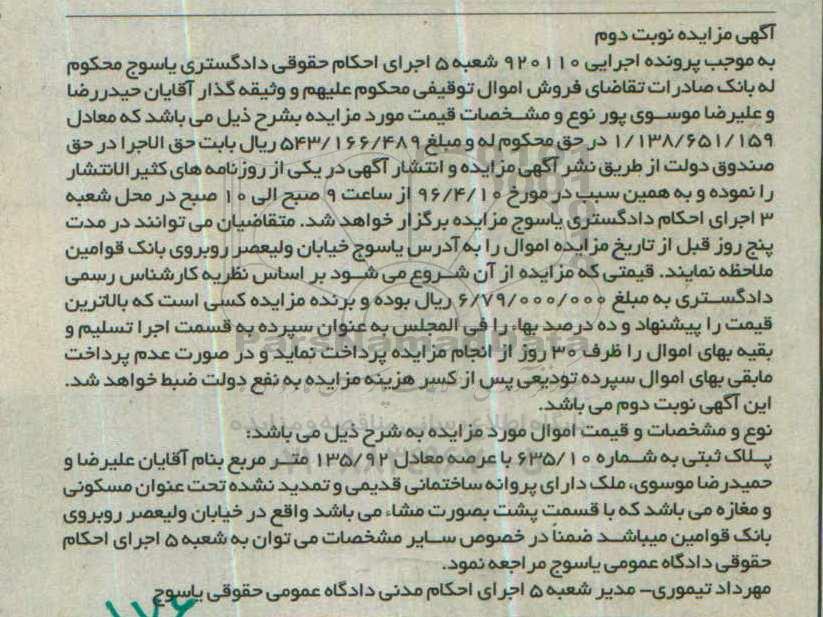 آگهی مزایده نوبت دوم
به موجب پرونده اجرایی ۹۲۰۱۱۰ شعبه ۵ اجرای احکام حقوقی دادگستری یاسوج محکوم
له بانک صادرات تقاضای فروش اموال توقیفی محکوم علیهم و وثیقه گذار آقایان حیدررضا
و علیرضا موسوی پور نوع و مشخصات قیمت مورد مزایده بشرح ذیل می باشد که معادل
۱/۱۳۸/۶۵۱/۱۵۹ در حق محکوم له و مبلغ ۵۴۳/۱۶۶/۴۸۹ ریال بابت حق الاجرا در حق
صندوق دولت از طریق نشر آگهی مزایده و انتشار آگهی در یکی از روزنامه های کثیر الانتشار
را نموده و به همین سبب در مورخ ۹۶/۴/۱۰ از ساعت ۹ صبح الی ۱۰ صبح در محل شعبه
۳ اجرای احکام دادگستری یاسوج مزایده برگزار خواهد شد. متقاضیان می توانند در مدت
پنج روز قبل از تاریخ مزایده اموال را به آدرس یاسوج خیابان ولیعصر روبروی بانک قوامین
ملاحظه نمایند. قیمتی که مزایده از آن شروع می شود بر اساس نظریه کارشناس رسمی
دادگستری به مبلغ ۶/۷۹/۰۰۰/۰۰۰ ریال بوده و برنده مزایده کسی است که بالاترین
قیمت را پیشنهاد و ده درصد بهاء را فی المجلس به عنوان سپرده به قسمت اجرا تسلیم و
بقیه بهای اموال را ظرف ۳۰ روز از انجام مزایده پرداخت نماید و در صورت عدم پرداخت
مابقی بهای اموال سپرده تودیعی پس از کسر هزینه مزایده به نفع دولت ضبط خواهد شد.
این آگهی نوبت دوم می باشد.
نوع و مشخصات و قیمت اموال مورد مزایده به شرح ذیل می باشد:
پلاک ثبتی به شماره ۶۳۵/۱۰ با عرصه معادل ۱۳۵/۹۲ متر مربع بنام آقایان علیرضا و
حمیدرضا موسوی، ملک دارای پروانه ساختمانی قدیمی و تمدید نشده تحت عنوان مسکونی
و مغازه می باشد که با قسمت پشت بصورت مشاء می باشد واقع در خیابان ولیعصر روبروی
بانک قوامین میباشد ضمناً در خصوص سایر مشخصات می توان به شعبه ۵ اجرای احکام
حقوقی دادگاه عمومی یاسوج مراجعه نمود.
مهرداد تیموری- مدیر شعبه ۵ اجرای احکام مدنی دادگاه عمومی حقوقی یاسوج
ParsNamadData